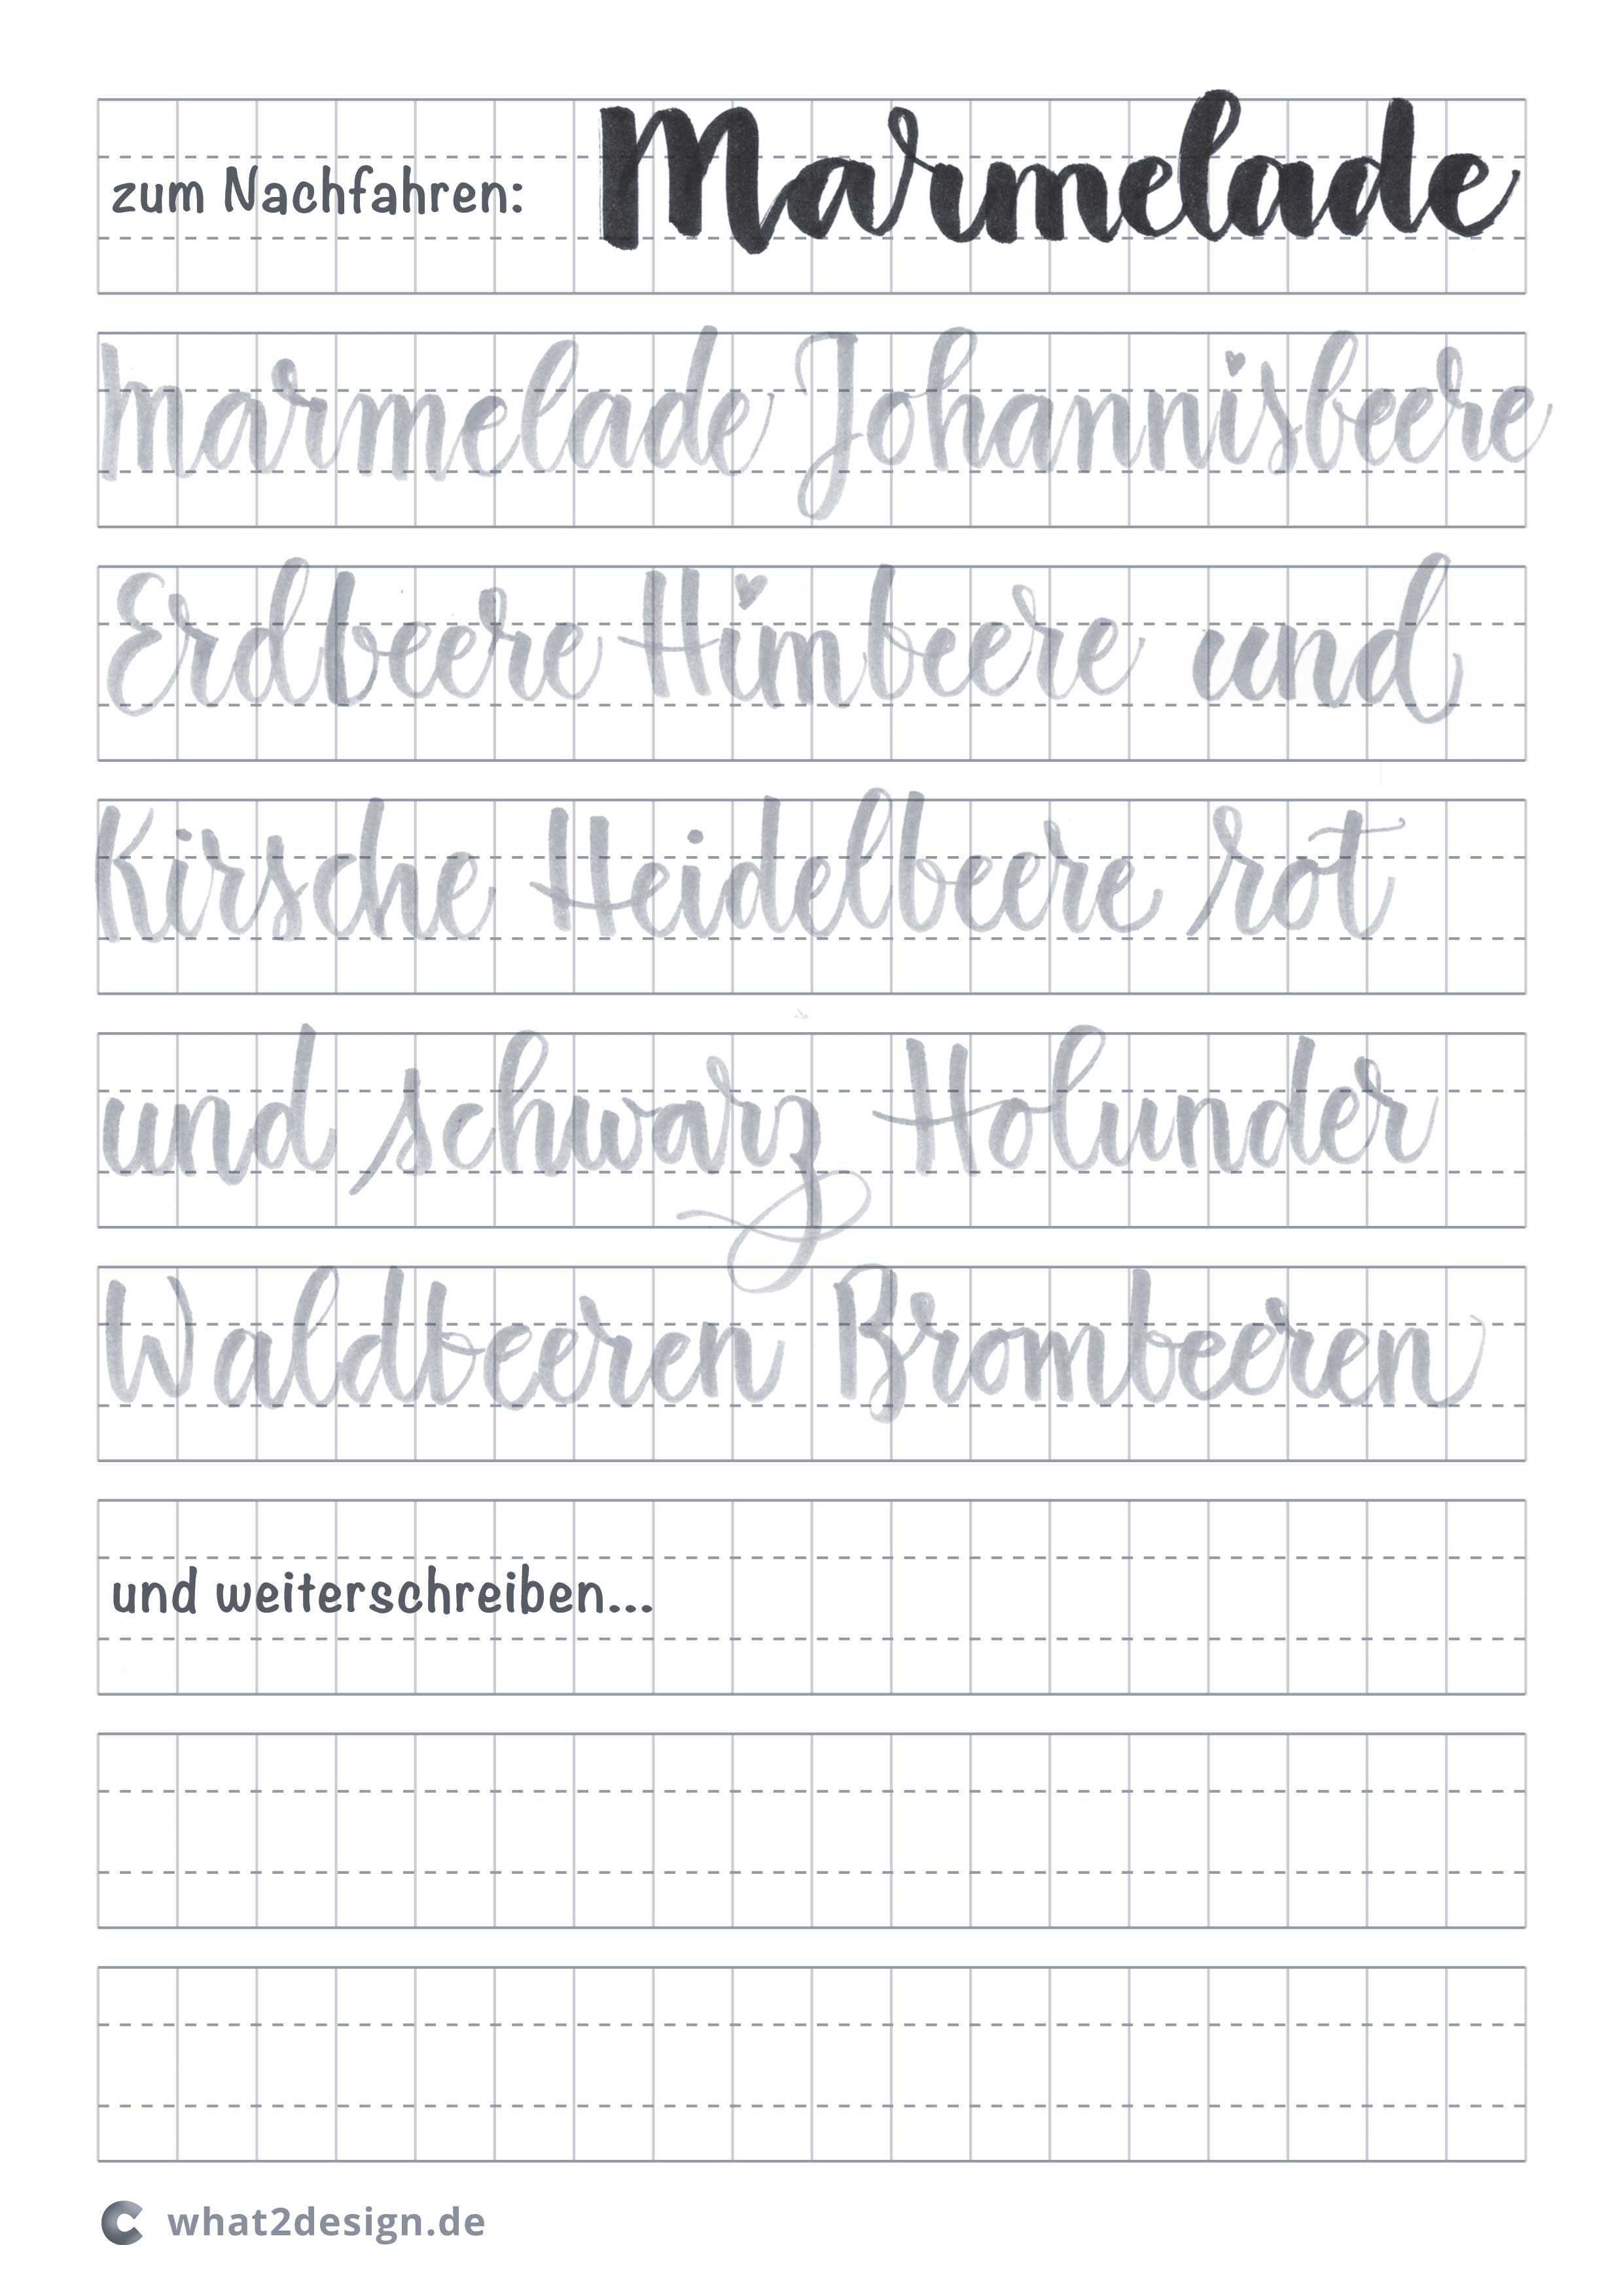 zum Nachfahren: Marmelade
Marmelade Johannisbeere
Erdbeere Himbeere und
Kirsche Heidelbeere rot
und schwarz Holunder
Waldbeeren Brombeeren
und weiterschreiben...
what2design.de